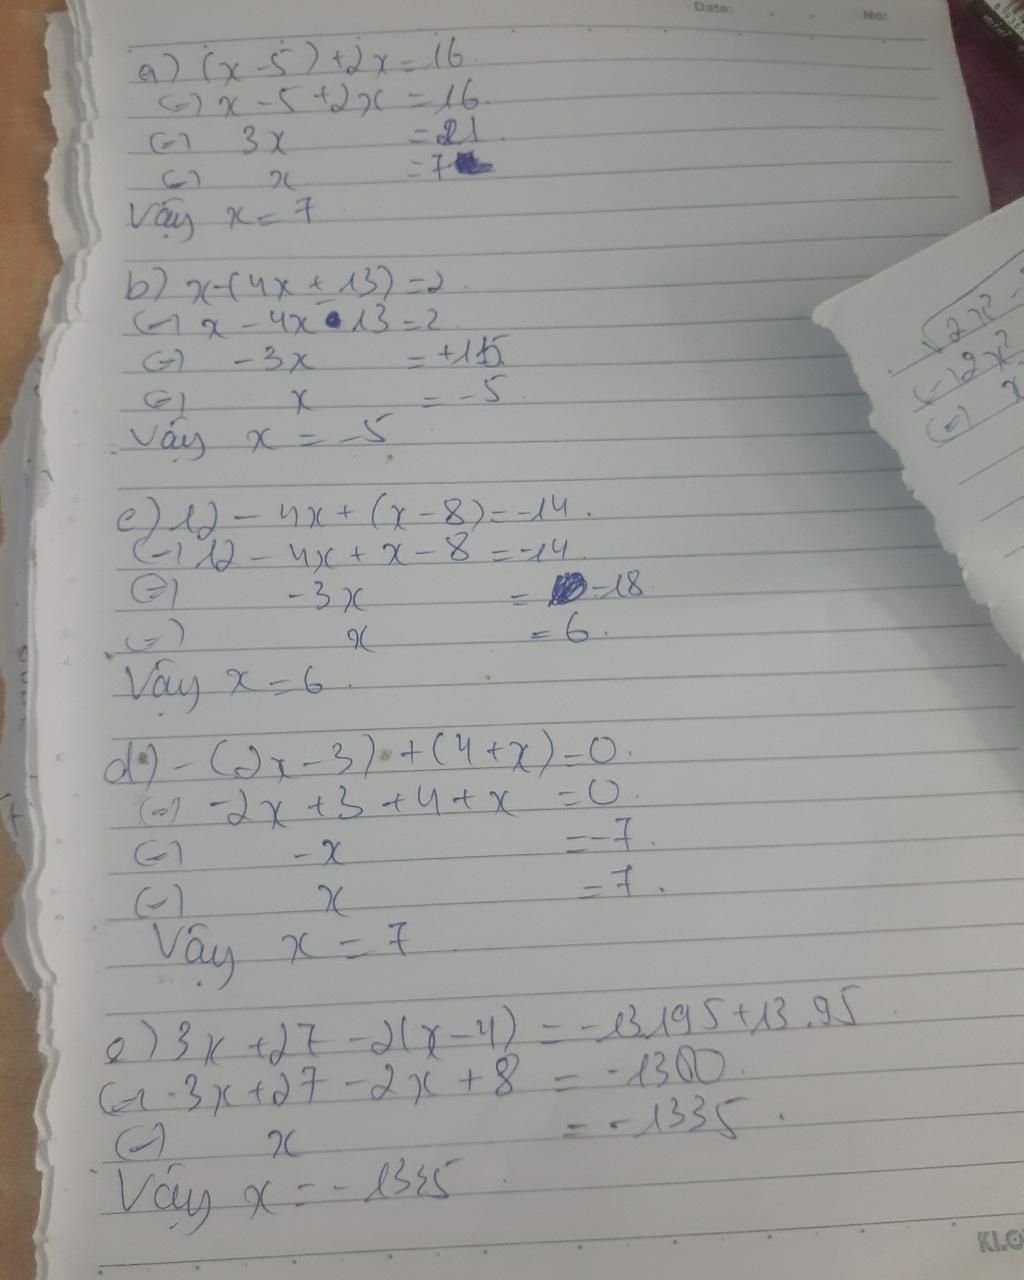 Date: No:
a) (x-5)+2x=16
(=) x-5+2x=16
(=) 3x =21
(=) x =7
Vậy x=7
b) x-(4x+13)=2
(=) x-4x-13=2
(=) -3x =+15
(=) x =-5
Vậy x=-5
c) 12-4x+(x-8)=-14.
(=) 12-4x+x-8=-14
(=) -3x =-18
(=) x =6.
Vậy x=6.
d) -(2x-3)+(4+x)=0.
(=) -2x+3+4+x =0.
(=) -x =-7.
(=) x =7.
Vậy x=7
e) 3x+27-2(x-4) =-13.195+13.95
(=) 3x+27-2x+8 =-1300.
(=) x =-1335.
Vậy x=-1335.
√2x²
(=) 2x²
(=) x